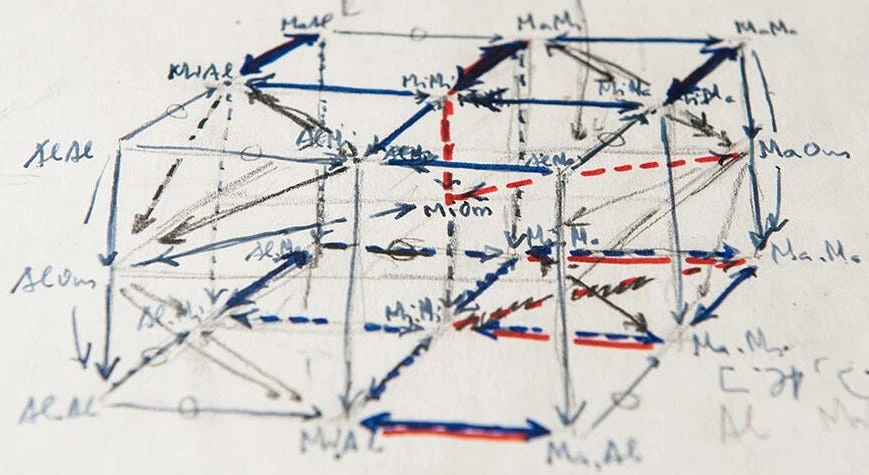 MaAl
MaMi
MaMa
MiAl
MiMi
MiMa
AlAl
AlMi
AlMa
MaOm
MiOm
AlOm
Al.Ma
Mi.Ma
Ma.Ma
Al.Mi
Mi.Mi
Ma.Mi
Al.Al
Mi.Al
Ma.Al
Al